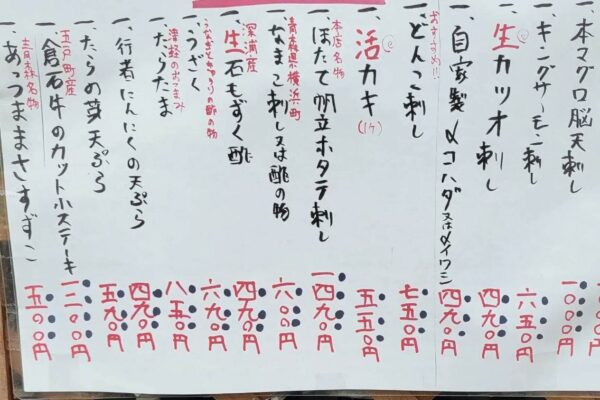 一、本マグロ脳天刺し 一〇〇〇円
一、キングサーモン刺し 六五〇円
一、生カツオ刺し 四九〇円
一、自家製〆コハダ又は〆イワシ 四九〇円
おすすめ!!
一、どんこ刺し 七五〇円
一、活カキ(1ケ) 五五〇円
本店名物
一、ほたて帆立ホタテ刺し 一四九〇円
青森県横浜町
一、なまこ刺し又は酢の物 六〇〇円
深浦産
一、生石もずく酢 四九〇円
うなぎときゅうりの酢の物
一、うざく 六九〇円
津軽のおつまみ
一、たらたま 八五〇円
一、行者にんにくの天ぷら 四九〇円
一、たらの芽天ぷら 五九〇円
五戸町産
一、倉石牛のカット小ステーキ 一二〇〇円
青森名物
一、あつままさすずこ 五〇〇円